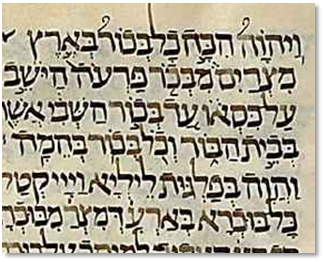 וַיהוָה הִכָּה כָל בְּכוֹר בְּאֶרֶץ
מִצְרַיִם מִבְּכֹר פַּרְעֹה הַיֹּשֵׁב
עַל כִּסְאוֹ עַד בְּכוֹר הַשְּׁבִי אֲשֶׁר
בְּבֵית הַבּוֹר וְכֹל בְּכוֹר בְּהֵמָה
וַהֲוָה בְּפַלְגוּת לֵילְיָא וַייָי קְטַל
כָּל בּוּכְרָא בְּאַרְעָא דְמִצְר